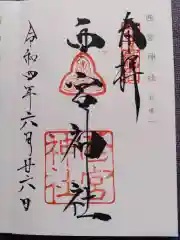 奉拝
西宮神社
西宮
神社
令和四年六月廿六日